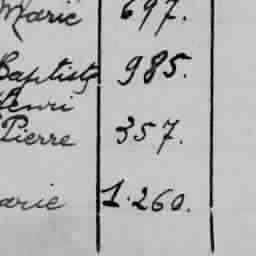 Marie 697.
Baptiste 985.
Henri
Pierre 357.
arie 1.260.